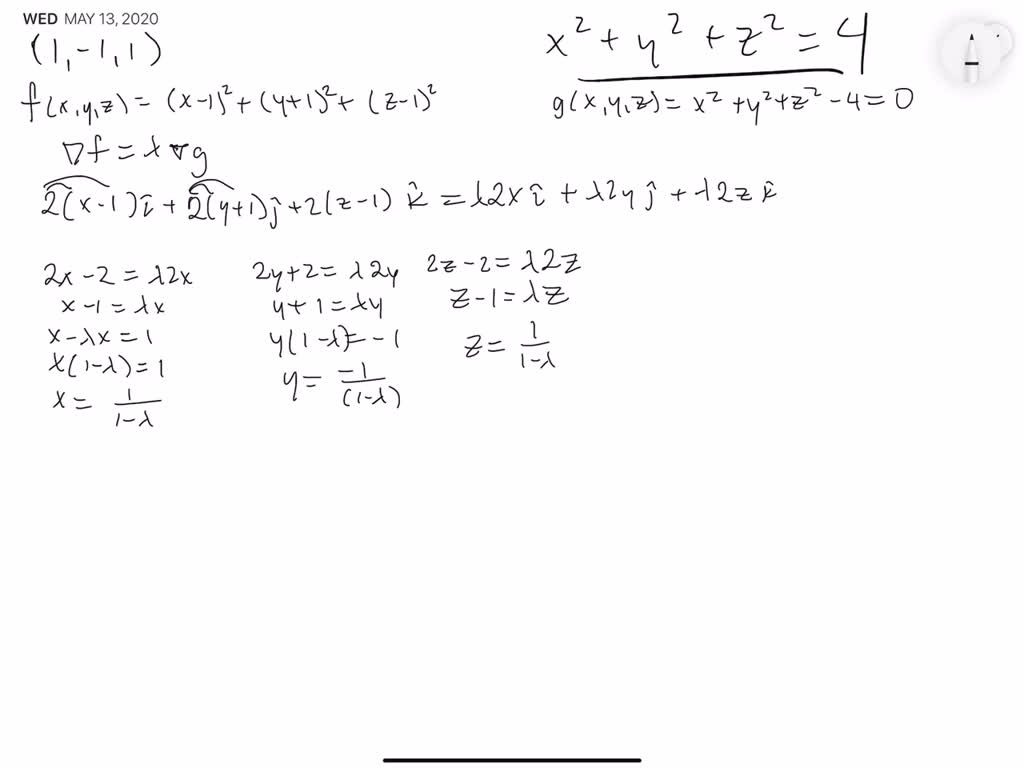 WED MAY 13, 2020
(1,-1,1)
x² + y² + z² = 4
f(x,y,z) = (x-1)² + (y+1)² + (z-1)²
g(x,y,z) = x² + y² + z² - 4 = 0
∇f = λ∇g
2(x-1)î + 2(y+1)ĵ + 2(z-1) k̂ = λ2x î + λ2y ĵ + λ2z k̂
2x - 2 = λ2x
x - 1 = λx
x - λx = 1
x(1-λ) = 1
x = 1/(1-λ)
2y + 2 = λ2y
y + 1 = λy
y(1-λ) = -1
y = -1/(1-λ)
2z - 2 = λ2z
z - 1 = λz
z = 1/(1-λ)